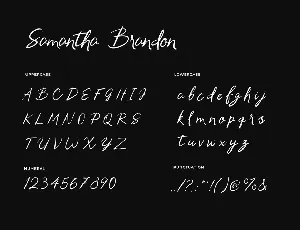 Samantha Brandon
UPPERCASE
ABCDEFGHIJ
KLMNOPQRS
TUVWXYZ
LOWERCASE
abcdefghij
klmnopqrs
tuvwxyz
NUMERAL
1234567890
PUNCTUATION
.,!?;:"!()@%&